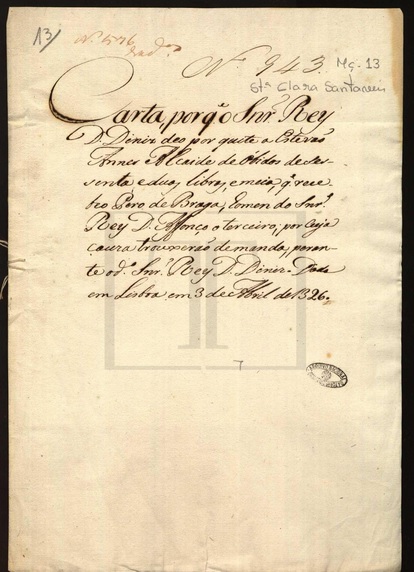 13/
Nº 1576
Nº 943.
Mç. 13
Stª Clara Santarem
Carta, porq̃ o Snr̃. Rey
D. Diniz deo por quite a Estevaõ
Annes Alcaide de Obidos de ses-
senta e duas libras, e meia, q̃ rece-
beo Pero de Braga, Homem do Snr̃.
Rey D. Affonço o terceiro, por cuja
cauza trouxeraõ demanda, peran-
te o dº. Snr̃. Rey D. Diniz. Data
em Lisboa em 3 de Abril de 1326.
7